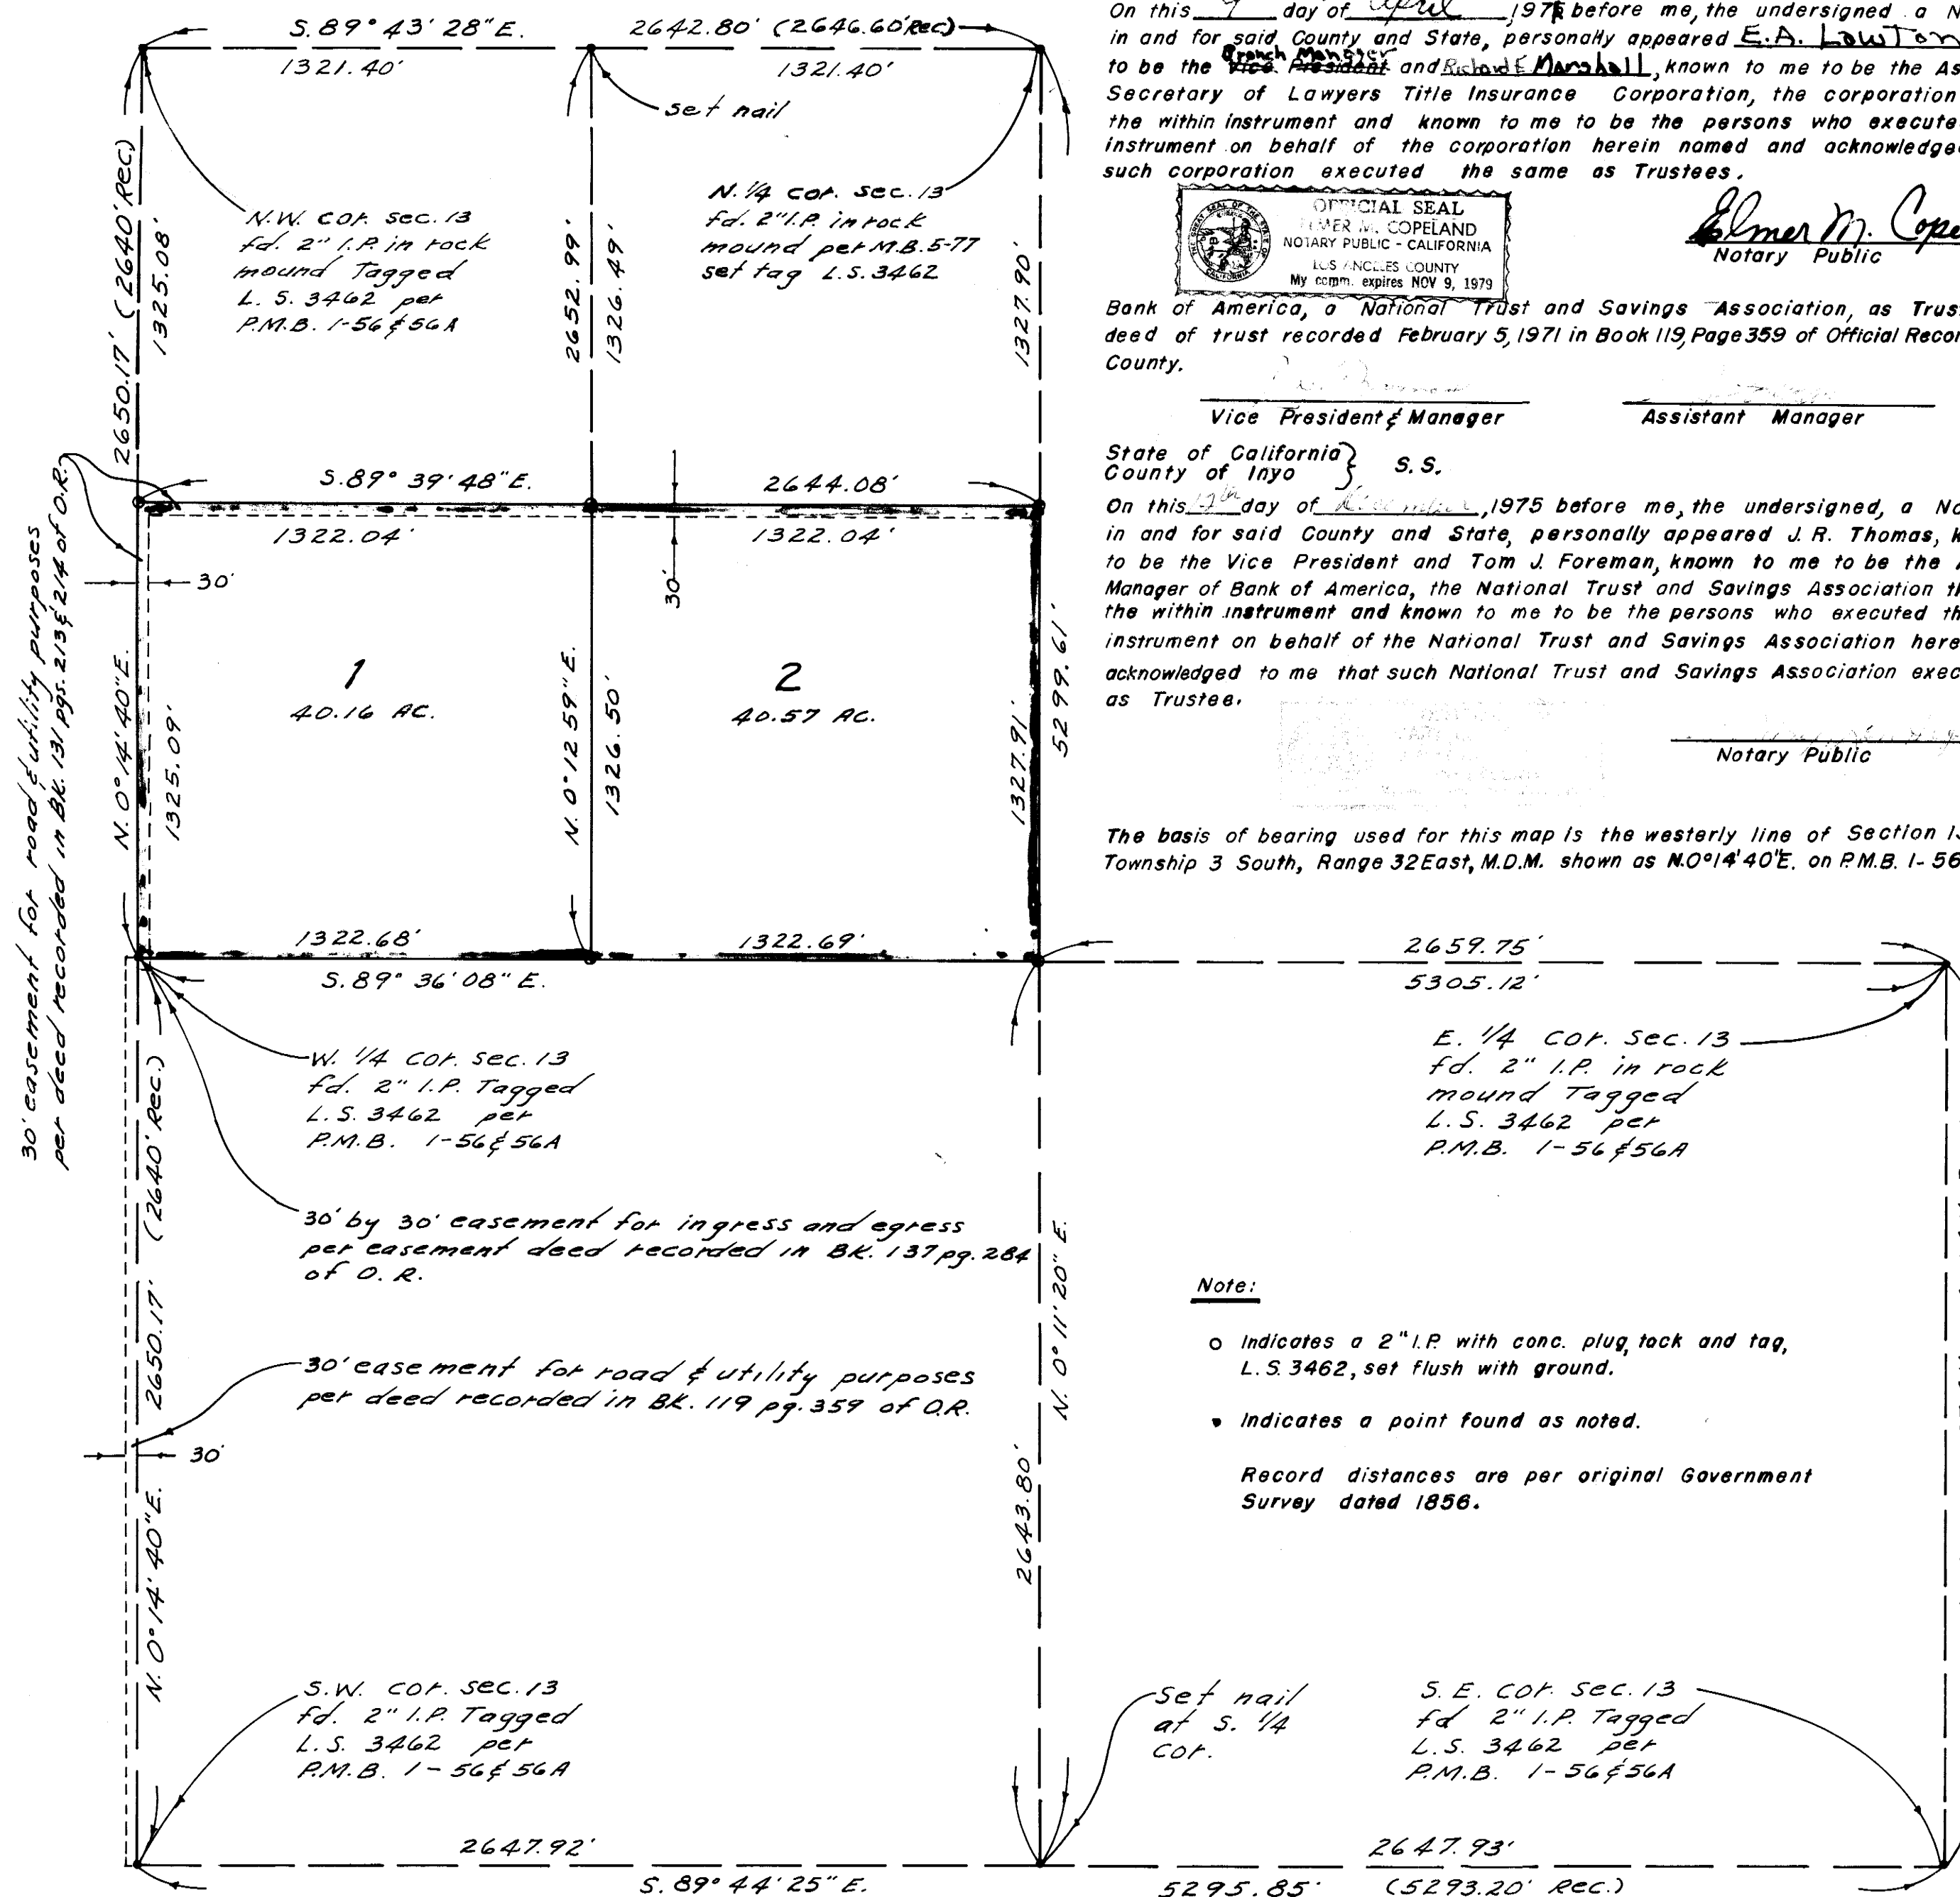 S. 89° 43' 28" E. 2642.80' (2646.60' Rec)
1321.40' 1321.40'
set nail
2650.17' (2640' Rec)
1325.08'
N.W. cor. sec. 13
fd. 2" I.P. in rock
mound Tagged
L. S. 3462 per
P.M.B. 1-56 & 56A
2652.99'
1326.49'
N. 1/4 cor. sec. 13
fd. 2" I.P. in rock
mound per M.B. 5-77
set tag L.S. 3462
1327.90'
S. 89° 39' 48" E. 2644.08'
1322.04' 1322.04'
30'
30'
30' easement for road & utility purposes
per deed recorded in BK. 131 pgs. 213 & 214 of O.R.
N. 0° 14' 40" E.
1325.09'
1
40.16 AC.
N. 0° 12' 59" E.
1326.50'
2
40.57 AC.
1327.91'
5299.61'
1322.68' 1322.69'
S. 89° 36' 08" E.
W. 1/4 cor. sec. 13
fd. 2" I.P. Tagged
L. S. 3462 per
P.M.B. 1-56 & 56A
(2640' Rec.)
2650.17'
N. 0° 14' 40" E.
30' by 30' easement for ingress and egress
per easement deed recorded in BK. 137 pg. 284
of O. R.
30' easement for road & utility purposes
per deed recorded in BK. 119 pg. 359 of O.R.
30'
N. 0° 11' 20" E.
2643.80'
S.W. cor. sec. 13
fd. 2" I.P. Tagged
L. S. 3462 per
P.M.B. 1-56 & 56A
2647.92'
S. 89° 44' 25" E.
On this 9 day of April, 197 before me, the undersigned a N
in and for said County and State, personally appeared E.A. Lawton
Branch Manager
to be the Vice President and Richard E Marshall, known to me to be the As
Secretary of Lawyers Title Insurance Corporation, the corporation
the within instrument and known to me to be the persons who execute
instrument on behalf of the corporation herein named and acknowledge
such corporation executed the same as Trustees.
OFFICIAL SEAL
ELMER M. COPELAND
NOTARY PUBLIC - CALIFORNIA
LOS ANGELES COUNTY
My comm. expires NOV 9, 1979
Elmer M. Cope
Notary Public
Bank of America, a National Trust and Savings Association, as Trus
deed of trust recorded February 5, 1971 in Book 119, Page 359 of Official Recor
County.
Vice President & Manager Assistant Manager
State of California } S.S.
County of Inyo
On this day of , 1975 before me, the undersigned, a No
in and for said County and State, personally appeared J. R. Thomas, k
to be the Vice President and Tom J. Foreman, known to me to be the A
Manager of Bank of America, the National Trust and Savings Association th
the within instrument and known to me to be the persons who executed th
instrument on behalf of the National Trust and Savings Association here
acknowledged to me that such National Trust and Savings Association exec
as Trustee.
Notary Public
The basis of bearing used for this map is the westerly line of Section 13
Township 3 South, Range 32 East, M.D.M. shown as N.0°14'40"E. on P.M.B. 1-56
2659.75'
5305.12'
E. 1/4 cor. sec. 13
fd. 2" I.P. in rock
mound Tagged
L. S. 3462 per
P.M.B. 1-56 & 56A
Note:
o Indicates a 2" I.P. with conc. plug, tack and tag,
L. S. 3462, set flush with ground.
• Indicates a point found as noted.
Record distances are per original Government
Survey dated 1856.
Set nail
at S. 1/4
cor.
S. E. cor. sec. 13
fd 2" I.P. Tagged
L. S. 3462 per
P.M.B. 1-56 & 56A
2647.93'
5295.85' (5293.20' Rec.)